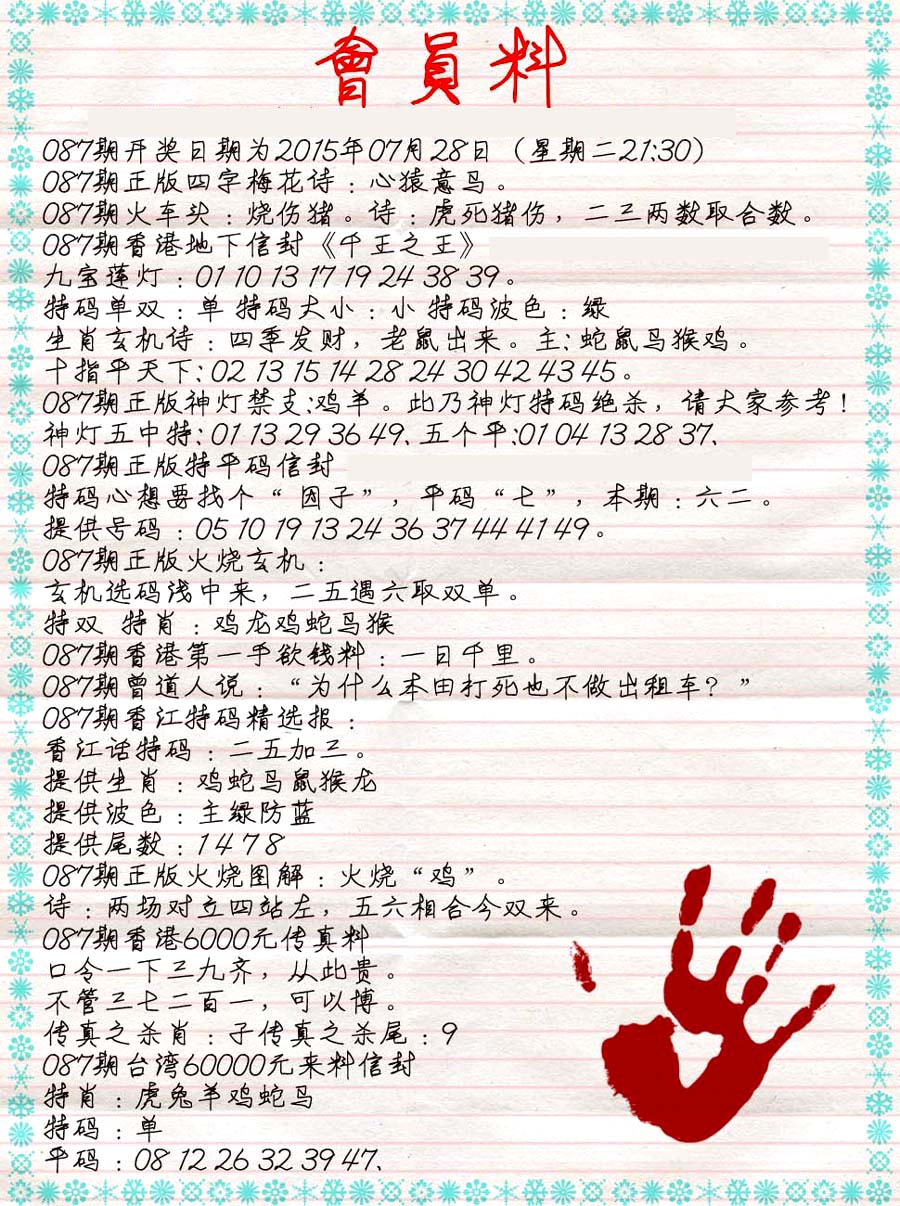 會員料
087期开奖日期为2015年07月28日（星期二21:30）
087期正版四字梅花诗：心猿意鸟。
087期火车头：烧伤猪。诗：虎死猪伤，二三两数取合数。
087期香港地下信封《千王之王》
九宝莲灯：01 10 13 17 19 24 38 39。
特码单双：单 特码大小：小 特码波色：绿
生肖玄机诗：四季发财，老鼠出来。主：蛇鼠鸟猴鸡。
十指平天下：02 13 15 14 28 24 30 42 43 45。
087期正版神灯禁支:鸡羊。此乃神灯特码绝杀，请大家参考！
神灯五中特：01 13 29 36 49、五个平:01 04 13 28 37、
087期正版特平码信封
特码心想要找个“ 因子”，平码“七”，本期：六二。
提供号码：05 10 19 13 24 36 37 44 41 49。
087期正版火烧玄机：
玄机选码浅中来，二五遇六取双单。
特双 特肖：鸡龙鸡蛇马猴
087期香港第一手欲钱料：一日千里。
087期曾道人说：“为什么本田打死也不做出租车？”
087期香江特码精选报：
香江话特码：二五加三。
提供生肖：鸡蛇马鼠猴龙
提供波色：主绿防蓝
提供尾数：1 4 7 8
087期正版火烧图解：火烧“鸡”。
诗：两场对立四站左，五六相合今双来。
087期香港6000元传真料
口令一下三九齐，从此贵。
不管三七二百一，可以博。
传真之杀肖：子传真之杀尾：9
087期台湾60000元来料信封
特肖：虎兔羊鸡蛇马
特码：单
平码：08 12 26 32 39 47、